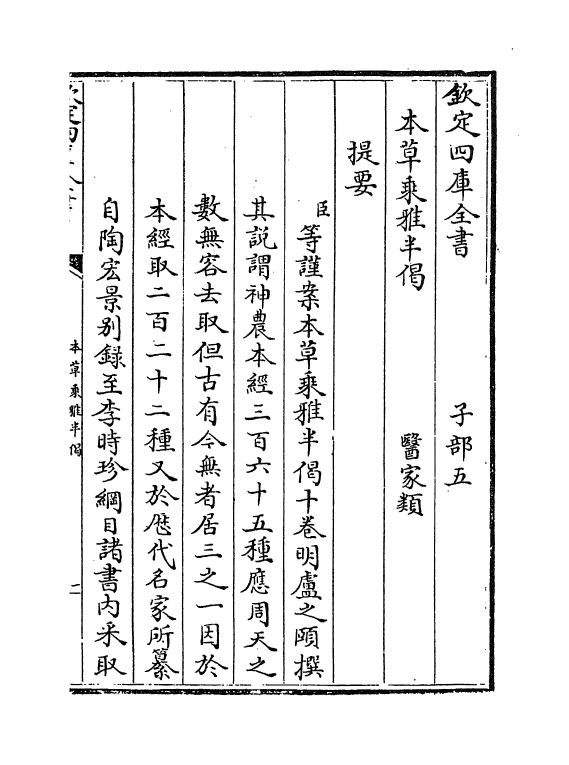 欽定四庫全書 子部五
本草乘雅半偈 醫家類
提要
臣等謹案本草乘雅半偈十卷明盧之頤撰
其説謂神農本經三百六十五種應周天之
數無容去取但古有今無者居三之一因於
本經取二百二十二種又於歴代名家所纂
自陶宏景别録至李時珍綱目諸書内采取
本草乘雅半偈
二